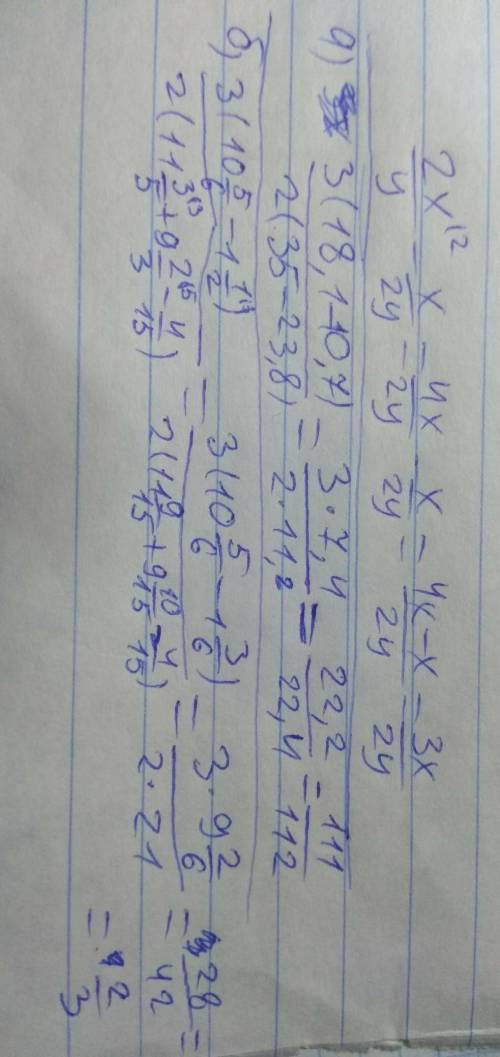 2x^{12}/y - x/2y = 4x/2y - x/2y = 4x-x/2y = 3x/2y
а) 3(18,1-10,7)/2(35-23,8) = 3·7,4/2·11,2 = 22,2/22,4 = 111/112
б) 3(10 5/6 - 1 1/2^{13})/2(11 3/5^{13} + 9 2/3^{15} - 4/15) = 3(10 5/6 - 1 3/6)/2(11 9/15 + 9 10/15 - 4/15) = 3·9 2/6/2·21 = 28/42 =
= 2/3